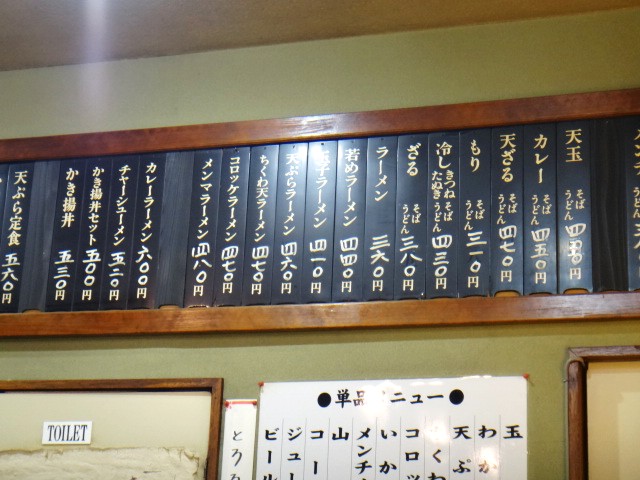 天玉 そば うどん 四五〇円
カレー そば うどん 四五〇円
天ざる そば うどん 四七〇円
もり そば うどん 三一〇円
冷し きつねそば たぬきうどん 四三〇円
ざる そば うどん 三八〇円
ラーメン 三六〇円
若めラーメン 四四〇円
玉子ラーメン 四一〇円
天ぷらラーメン 四六〇円
ちくわ天ラーメン 四七〇円
コロッケラーメン 四七〇円
メンマラーメン 四八〇円
カレーラーメン 六〇〇円
チャーシューメン 五二〇円
かき揚丼セット 五〇〇円
かき揚丼 五三〇円
天ぷら定食 五六〇円
●単品メニュー●
玉
わか
天ぷ
くわ
コロッ
いか
メンチ
山
コー
ジュー
ビール
とろろ
TOILET